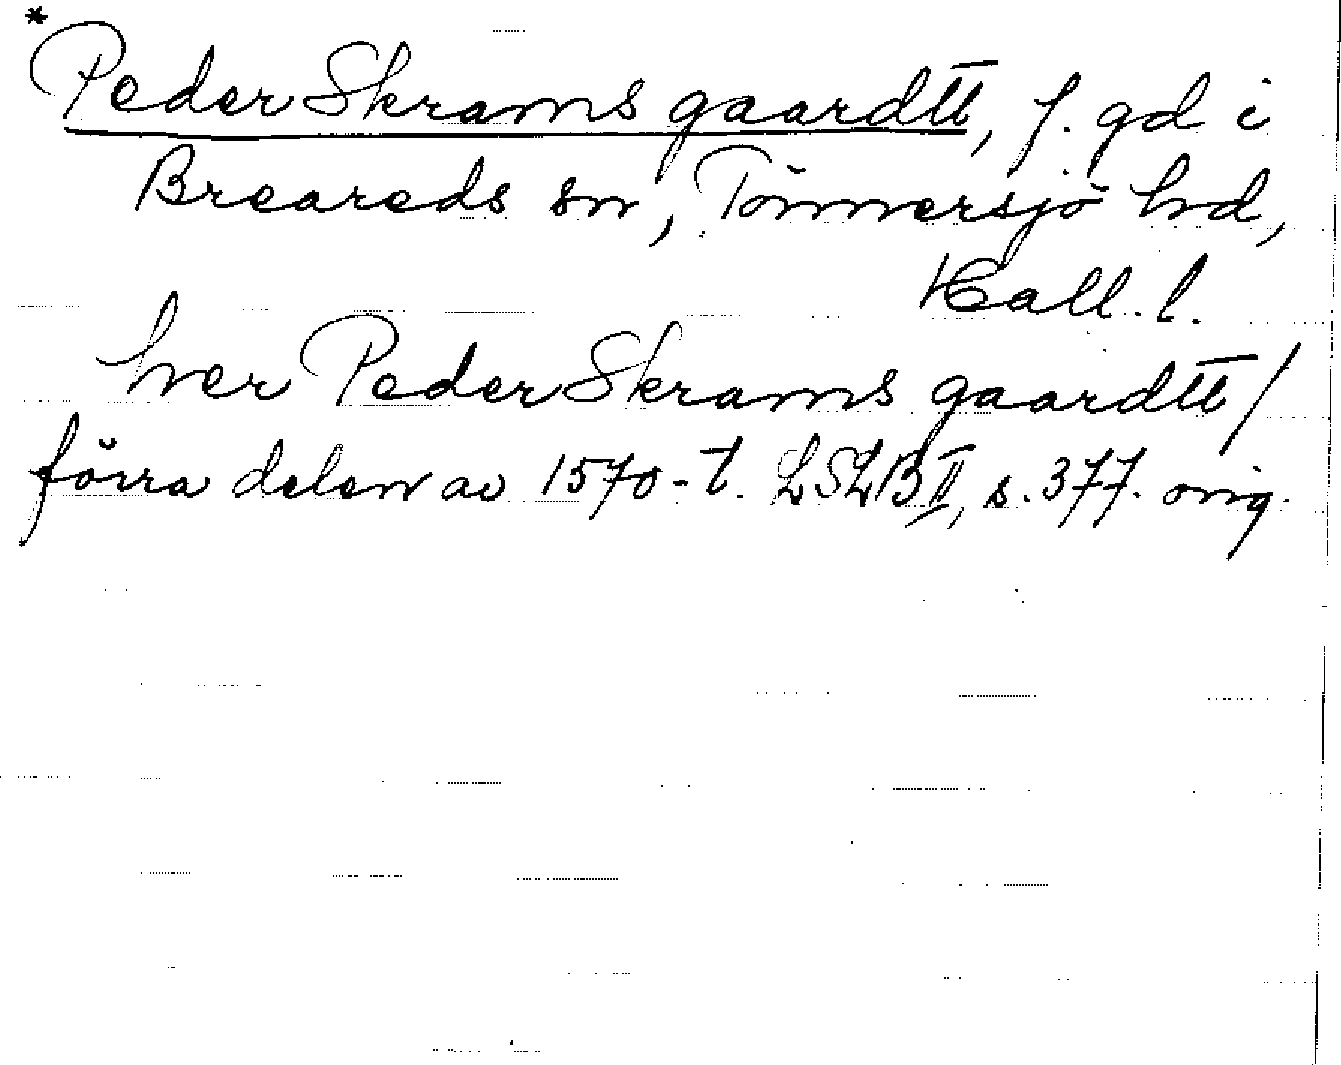 *Peder Skrams gaardtt, f. gd i
Breareds sn, Tönnersjö hd,
Hall. l.
hver Peder Skrams gaardtt /
förra delen av 1570-t. LSLB II, s. 377. orig.